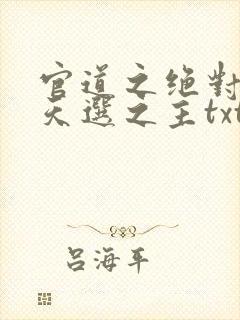 官道之绝對
天選之主txt
吕海平